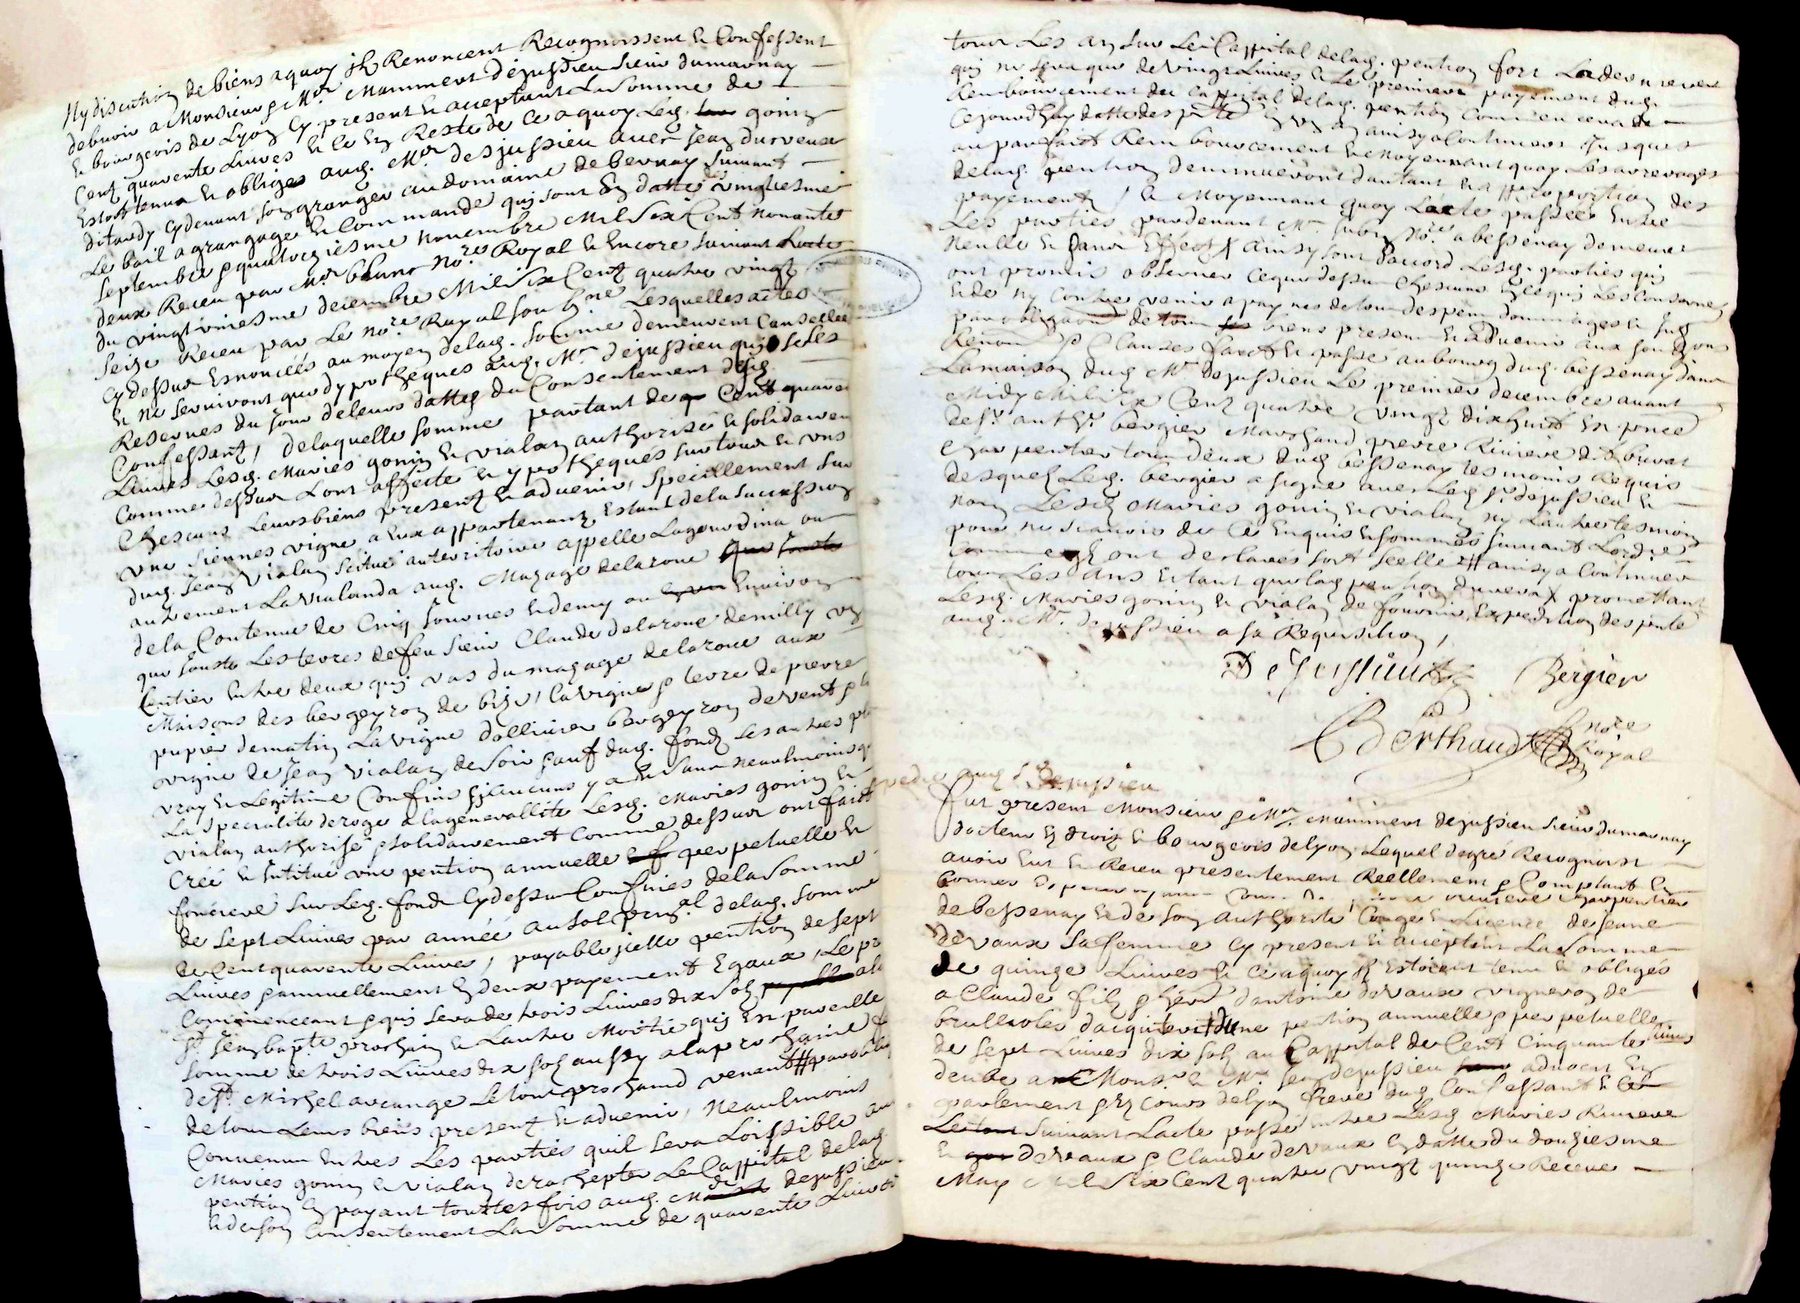 Ny discution de biens aquoy ilz Renoncent Recognoissent & Confessent
debvoir a Monsieur Me Mammert dejussieu sieur dumarnay
& bourgeois de Lyon Cy present & acceptant La somme de
Cent quarente Livres & ce En Reste de Ce aquoy Led. gonin
Estoit tenu & obligé aud. Mre dejussieu avec Jean
ditaudy cydevant son granger au domaine de bernay suivant
Le bail a grangage & Commande quy sont En datte des vingtiesme
septembre & quatorziesme novembre Mil Six Cent nonante
deux Receu par Me blanc Nore Royal & Encore suivant Lacte
du vingt uniesme decembre Mil Six Centz quatre vingtz
seize Receu par Le Nore Royal soubné Lesquelles actes
Cydessus Esnoncées au moyen delad. somme demeurent Cancellee
& ne serviront que dypotheques aud. Mr dejussieu quy se Les
Reserves du jour deleurs dattes du Consentement desd.
Confessantz, delaquelle somme partant de Centz quarente
Livres Lesd. Maries gonin & vialan authorisé & solidairement
Comme dessus ont affecté & ypotheques sur tous & uns
Chescuns Leurs biens presentz & advenir, Speciallement sur
une siennes vigne a Eux appartenant Estant de la succession
dud. Jean vialan scituée au territoire appellé Lagoutdina ou
autrement La vialanda aud. Mazage delaroue
de la Contenue de Cinq fourées & demy ou Environ
que jouste Les terres de feu sieur Claude delaroue demilly un
sentier Entre deux quy vas du mazage delaroue aux
Maisons des bergeyron de bize, La vigne & terre de pierre
pupier de matin La vigne d'ollivier bergeyron de vent & la
vigne de Jean vialan de soir sauf dud. fondz Ses autres plus
vray & Legitime Confins sy aucuns y a Et sans neaulmoins que
La Specialité deroge a la generallité Lesd. Maries gonin &
vialan authorisé & solidairement Comme dessus ont faict
Creé & Intitué une pention annuelle & perpetuelle &
fonciere sur Led. fondz Cydessus Confinés de la somme
de sept Livres par année au sol prinal delad. somme
de Cent quarente Livres, payable jcelle pention de sept
Livres & annuellement En deux payement Egaux, Le pr
Commenceant & quy sera de trois Livres dix solz
St Jean bapte prochain & Lautre Moitié quy Est pareille
somme de trois Livres dix solz aussy a la prochaine f
de St Michel arcange Le tout prochaind venant
de tous Leurs biens presentz & advenir, Neaulmoins
Convenu Entres Les parties quil sera Loissible aux
Maries gonin & vialan derachepter Le Cappital delad.
pention En payant touttesfois aud. Mr dejussieu
& de son Consentement La somme de quarente Livres
tous Les ans sur Le Cappital delad. pention fors La derniere
quy ne sera que de vingt Livres & Le premiere payement dud.
Rembourcement du Cappital delad. pention Commencera de
Cejourdhuy datte des pntes En un an ainsy a Continuer Jusques
au parfaict Rembourcement & Moyennant quoy Les arrerages
delad. pention diminueront dautant & a proportion des
payementz, & Moyennant quoy Lacte passée Entre
Les parties pardevant Me Nore a bessenay demeure
Nulle & sans Effect ainsy sont daccord Lesd. parties quy
ont promis observer Cequedessus Chescuns En ce quy Les Concernes
& de Ny Contre venir a paynes de tous despens dommages &
par obligaon de biens presens & advenir aux
Renonc & Clauses faict & passé au bourg dud. bessenay dans
La maison dud. Mr dejussieu Le premier decembre avant
Midy Mil Six Centz quatre vingtz dixhuict En pnce
de Sr anthe bergier Marchand pierre Riviere
Charpentier tous deux dud. bessenay tesmoins Requis
desquels Led. bergier a signé avec Led. Sr dejussieu &
non Lesd. Maries gonin & vialan ny Lautre tesmoin
pour ne scavoir de Ce Enquis & sommés suivant Lordre
Comme ilz ont desclarés sort scellé ainsy a Continuer
tous Les ans Et tant que lad. pention durera & promettant
Lesd. Maries gonin & vialan de fournir Expedition des pntes
aud. Mr dejussieu a sa Requisition,
DeJussieu Bergier
Berthaud nore Royal
Expedié aud. Sr Dejussieu
Fut present Monsieur Me Mammert dejussieu sieur dumarnay
docteur Es droitz & bourgeois delyon Lequel degré Recognoist
avoir Eut & Receu presentement Reellement & Comptant &
de bessenay & de son authorité Congé & Licence de Jeanne
devaux sa femme Cy present & acceptant La somme
de quinze Livres & Ce aquoy ilz Estoient tenu & obligés
a Claude filz & hers dantoine devaux vigneron de
brullioles dacquiter dune pention annuelle & perpetuelle
de sept Livres dix solz au Cappital de Cent Cinquante livres
deube a Monsr Me Jean dejussieu advocat En
parlement & Es Cours delyon frere dud. Confessant & Ce
Le tout suivant Lacte passé Entre Lesd. Maries Riviere
& devaux & Claude devaux En datte du douziesme
May Mil Six Cent quatre vingtz quinze Receue